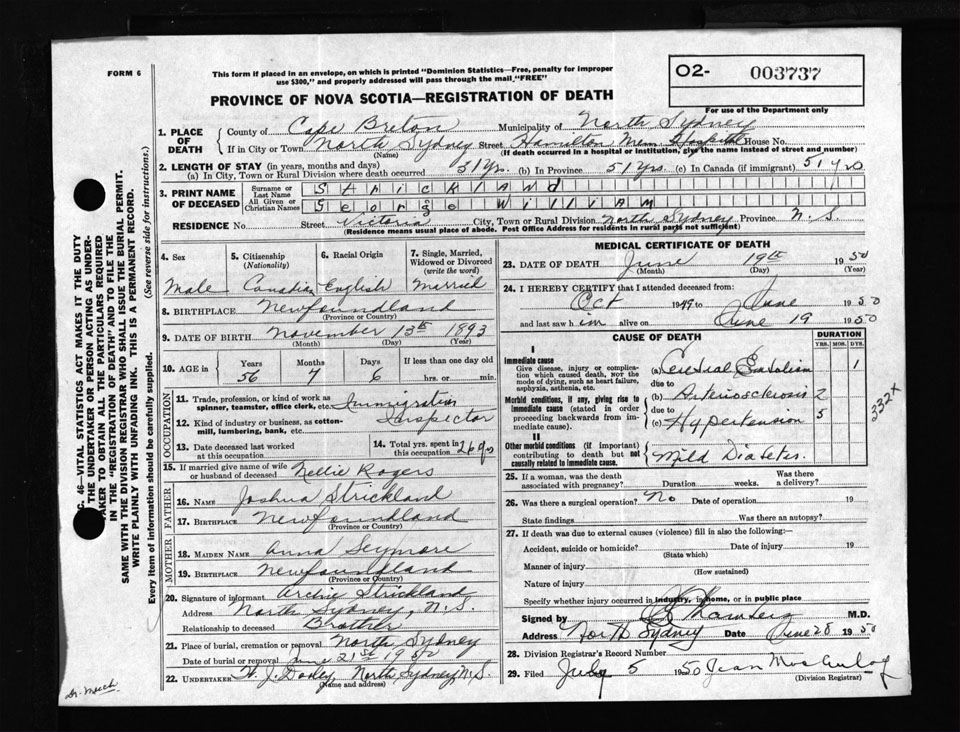 FORM 6
This form if placed in an envelope, on which is printed "Dominion Statistics—Free, penalty for improper
use $300," and properly addressed will pass through the mail "FREE"
O2- 003737
For use of the Department only
PROVINCE OF NOVA SCOTIA—REGISTRATION OF DEATH
1. PLACE OF DEATH
County of Cape Breton Municipality of North Sydney
If in City or Town North Sydney Street Hamilton Mem. Hospital House No.
(Name) (If death occurred in a hospital or institution, give the name instead of street and number)
2. LENGTH OF STAY (in years, months and days)
(a) In City, Town or Rural Division where death occurred 51 Yrs. (b) In Province 51 Yrs. (c) In Canada (if immigrant) 51 yrs
3. PRINT NAME OF DECEASED
Surname or Last Name Strickland
All Given or Christian Names George William
RESIDENCE No. Street Victoria City, Town or Rural Division North Sydney Province N. S.
(Residence means usual place of abode. Post Office Address for residents in rural parts not sufficient)
4. Sex Male
5. Citizenship (Nationality) Canadian
6. Racial Origin English
7. Single, Married, Widowed or Divorced (write the word) Married
8. BIRTHPLACE Newfoundland
(Province or Country)
9. DATE OF BIRTH November 13th 1893
(Month) (Day) (Year)
10. AGE in Years 56 Months 7 Days 6 If less than one day old hrs. or min.
OCCUPATION
11. Trade, profession, or kind of work as spinner, teamster, office clerk, etc. Immigration
12. Kind of industry or business, as cotton-mill, lumbering, bank, etc. Inspector
13. Date deceased last worked at this occupation
14. Total yrs. spent in this occupation 26 yrs
15. If married give name of wife or husband of deceased Nellie Rogers
FATHER
16. NAME Joshua Strickland
17. BIRTHPLACE Newfoundland
(Province or Country)
MOTHER
18. MAIDEN NAME Anna Seymore
19. BIRTHPLACE Newfoundland
(Province or Country)
20. Signature of informant Archie Strickland
Address North Sydney, N. S.
Relationship to deceased Brother
21. Place of burial, cremation or removal North Sydney
Date of burial or removal June 21st 1950
22. UNDERTAKER H. J. Dooley, North Sydney N. S.
(Name and address)
MEDICAL CERTIFICATE OF DEATH
23. DATE OF DEATH June 19th 1950
(Month) (Day) (Year)
24. I HEREBY CERTIFY that I attended deceased from:
Oct 1949 to June 1950
and last saw him alive on June 19 1950
CAUSE OF DEATH
DURATION
YRS. MOS. DYS.
I
Immediate cause
Give disease, injury or complication which caused death, NOT the mode of dying, such as heart failure, asphyxia, asthenia, etc.
(a) Cerebral Embolism 1
due to
Morbid conditions, if any, giving rise to immediate cause (stated in order proceeding backwards from immediate cause).
(b) Arteriosclerosis 2
due to
(c) Hypertension 5
II
Other morbid conditions (if important) contributing to death but not causally related to immediate cause.
Mild Diabetes.
332x
25. If a woman, was the death associated with pregnancy? Duration weeks. Was there a delivery?
26. Was there a surgical operation? No Date of operation 19
State findings Was there an autopsy?
27. If death was due to external causes (violence) fill in also the following:—
Accident, suicide or homicide? Date of injury 19
(State which)
Manner of injury
(How sustained)
Nature of injury
Specify whether injury occurred in industry, in home, or in public place
Signed by M.D.
Address North Sydney Date June 28 1950
28. Division Registrar's Record Number
29. Filed July 5 1950 Jean
(Division Registrar)
C. 46—VITAL STATISTICS ACT MAKES IT THE DUTY
THE UNDERTAKER OR PERSON ACTING AS UNDER-
TAKER TO OBTAIN ALL THE PARTICULARS REQUIRED
IN THE "REGISTRATION OF DEATH" AND TO FILE THE
SAME WITH THE DIVISION REGISTRAR WHO SHALL ISSUE THE BURIAL PERMIT.
WRITE PLAINLY WITH UNFADING INK. THIS IS A PERMANENT RECORD.
Every item of information should be carefully supplied. (See reverse side for instructions.)